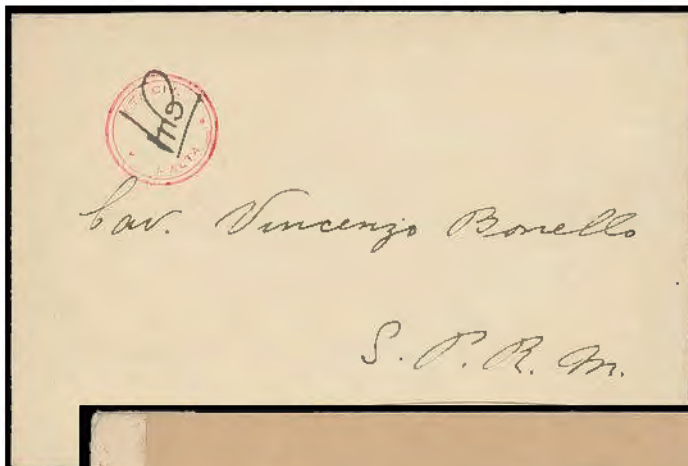 MALTA
Cav. Vincenzo Bonello
S. P. R. M.